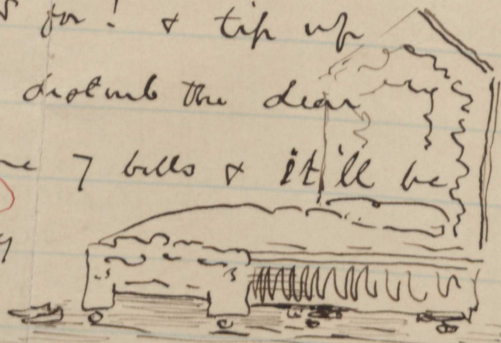 for! & tip up
disturb the dear
7 bells & it'll be